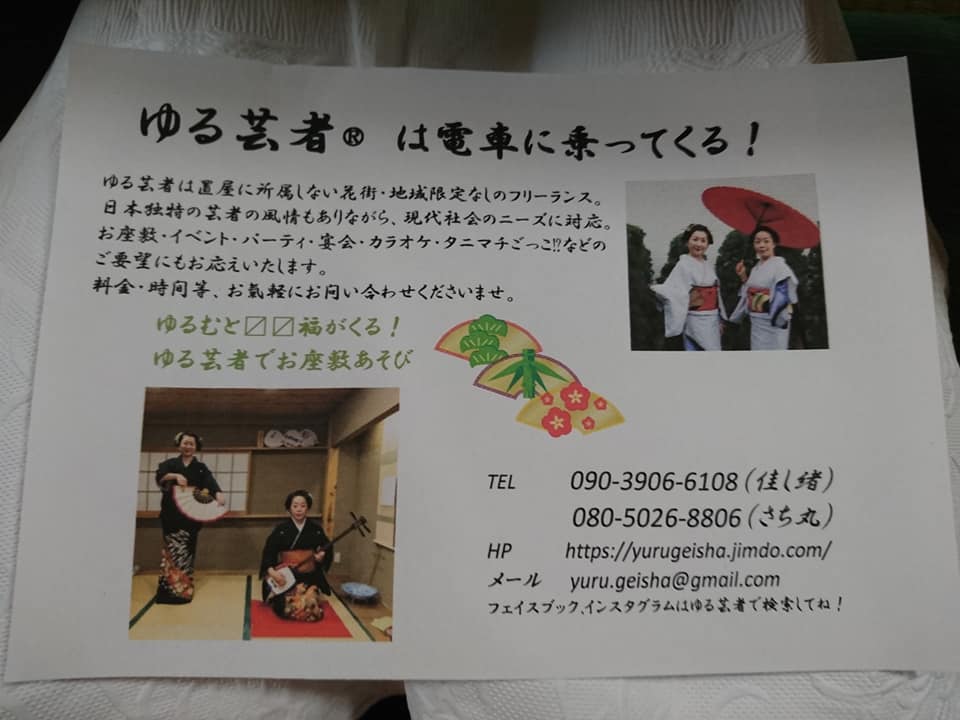 ゆる芸者® は電車に乗ってくる！
ゆる芸者は置屋に所属しない花街・地域限定なしのフリーランス。
日本独特の芸者の風情もありながら、現代社会のニーズに対応。
お座敷・イベント・パーティ・宴会・カラオケ・タニマチごっこ⁉などの
ご要望にもお応えいたします。
料金・時間等、お気軽にお問い合わせくださいませ。
ゆるむと〼〼福がくる！
ゆる芸者でお座敷あそび
TEL 090-3906-6108（佳し緒）
080-5026-8806（さち丸）
HP https://yurugeisha.jimdo.com/
メール yuru.geisha@gmail.com
フェイスブック、インスタグラムはゆる芸者で検索してね！